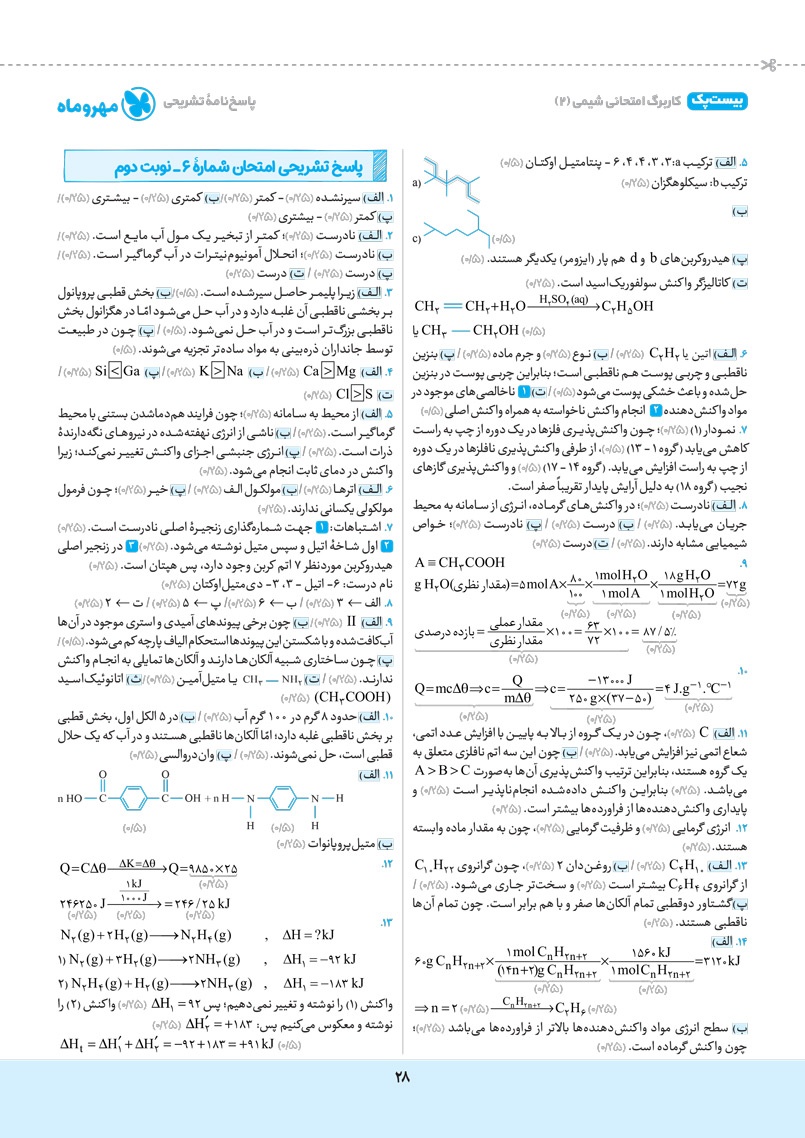 بیست‌پک کاربرگ امتحانی شیمی (۲)
پاسخ‌نامهٔ تشریحی مهروماه
۵. الف) ترکیب a: ۳، ۳، ۴، ۴، ۶ - پنتامتیل اوکتان (۰/۵)
a)
ترکیب b: سیکلوهگزان (۰/۲۵)
ب)
c) (۰/۵)
پ) هیدروکربن‌های b و d هم پار (ایزومر) یکدیگر هستند. (۰/۵)
ت) کاتالیزگر واکنش سولفوریک‌اسید است. (۰/۲۵)
CH₂ = CH₂ + H₂O —H₂SO₴(aq)→ C₂H₅OH
یا CH₃ — CH₂OH (۰/۵)
۶. الف) اتین یا C₂H₂ (۰/۲۵) / ب) نوع (۰/۲۵) و جرم ماده (۰/۲۵) / پ) بنزین
ناقطبی و چربی پوست هم ناقطبی است؛ بنابراین چربی پوست در بنزین
حل شده و باعث خشکی پوست می‌شود (۰/۲۵) / ت) ۱ ناخالصی‌های موجود در
مواد واکنش‌دهنده ۲ انجام واکنش ناخواسته به همراه واکنش اصلی (۰/۵)
۷. نمودار (۱) (۰/۲۵)؛ چون واکنش‌پذیری فلزها در یک دوره از چپ به راست
کاهش می‌یابد (گروه ۱ - ۱۳) (۰/۵)، از طرفی واکنش‌پذیری نافلزها در یک دوره
از چپ به راست افزایش می‌یابد. (گروه ۱۴ - ۱۷) (۰/۵) و واکنش‌پذیری گازهای
نجیب (گروه ۱۸) به دلیل آرایش پایدار تقریباً صفر است.
۸. الف) نادرست (۰/۲۵)؛ در واکنش‌های گرماده، انرژی از سامانه به محیط
جریان می‌یابد. (۰/۲۵) / ب) درست (۰/۲۵) / پ) نادرست (۰/۲۵)؛ خواص
شیمیایی مشابه دارند. (۰/۲۵) / ت) درست (۰/۲۵)
۹. A ≡ CH₃COOH
g H₂O (مقدار نظری) = ۵ mol A × ۸۰/۱۰۰ × ۱ mol H₂O/۱ mol A × ۱۸ g H₂O/۱ mol H₂O = ۷۲ g
(۰/۲۵) (۰/۲۵) (۰/۲۵) (۰/۲۵)
بازده درصدی = مقدار عملی/مقدار نظری × ۱۰۰ = ۶۳/۷۲ × ۱۰۰ = ۸۷/۵٪
(۰/۲۵) (۰/۲۵)
۱۰.
Q = mcΔθ ⇒ c = Q/mΔθ ⇒ c = −۱۳۰۰۰ J/۲۵۰ g × (۳۷ − ۵۰) = ۴ J.g⁻¹.°C⁻¹
(۰/۲۵) (۰/۲۵) (۰/۲۵)
۱۱. الف) C (۰/۲۵)، چون در یک گروه از بالا به پایین با افزایش عدد اتمی،
شعاع اتمی نیز افزایش می‌یابد. (۰/۲۵) / ب) چون این سه اتم نافلزی متعلق به
یک گروه هستند، بنابراین ترتیب واکنش‌پذیری آن‌ها به‌صورت A > B > C
می‌باشد. (۰/۲۵) بنابراین واکنش داده‌شده انجام‌ناپذیر است (۰/۲۵) و
پایداری واکنش‌دهنده‌ها از فراورده‌ها بیشتر است. (۰/۲۵)
۱۲. انرژی گرمایی (۰/۲۵) و ظرفیت گرمایی (۰/۲۵)، چون به مقدار ماده وابسته
هستند. (۰/۲۵)
۱۳. الف) C₄H₁₀ (۰/۲۵) / ب) روغن‌دان ۲ (۰/۲۵)، چون گرانروی C₁₀H₂₂
از گرانروی C₆H₁₄ بیشتر است (۰/۲۵) و سخت‌تر جاری می‌شود. (۰/۲۵) /
پ) گشتاور دوقطبی تمام آلکان‌ها صفر و با هم برابر است. چون تمام آن‌ها
ناقطبی هستند. (۰/۲۵)
۱۴. الف)
۶۰ g CₙH₂ₙ₊₂ × ۱ mol CₙH₂ₙ₊₂/(۱۴n+۲) g CₙH₂ₙ₊₂ × ۱۵۶۰ kJ/۱ mol CₙH₂ₙ₊₂ = ۳۱۲۰ kJ
(۰/۲۵) (۰/۲۵)
⇒ n = ۲ (۰/۲۵) —CₙH₂ₙ₊₂→ C₂H₆ (۰/۲۵)
ب) سطح انرژی مواد واکنش‌دهنده‌ها بالاتر از فراورده‌ها می‌باشد (۰/۲۵)؛
چون واکنش گرماده است. (۰/۲۵)
پاسخ تشریحی امتحان شمارهٔ ۶ ـ نوبت دوم
۱. الف) سیرنشده (۰/۲۵) - کمتر (۰/۲۵) / ب) کمتری (۰/۲۵) - بیشتری (۰/۲۵) /
پ) کمتر (۰/۲۵) - بیشتری (۰/۲۵)
۲. الف) نادرست (۰/۲۵)؛ کمتر از تبخیر یک مول آب مایع است. (۰/۲۵) /
ب) نادرست (۰/۲۵)؛ انحلال آمونیوم نیترات در آب گرماگیر است. (۰/۲۵) /
پ) درست (۰/۲۵) / ت) درست (۰/۲۵)
۳. الف) زیرا پلیمر حاصل سیرشده است. (۰/۵) / ب) بخش قطبی پروپانول
بر بخشی ناقطبی آن غلبه دارد و در آب حل می‌شود امّا در هگزانول بخش
ناقطبی بزرگ‌تر است و در آب حل نمی‌شود. (۰/۵) / پ) چون در طبیعت
توسط جانداران ذره‌بینی به مواد ساده‌تر تجزیه می‌شوند. (۰/۵)
۴. الف) Ca > Mg (۰/۲۵) / ب) K > Na (۰/۲۵) / پ) Si < Ga (۰/۲۵) /
ت) Cl > S (۰/۲۵)
۵. الف) از محیط به سامانه (۰/۲۵)؛ چون فرایند هم‌دماشدن بستنی با محیط
گرماگیر است. (۰/۲۵) / ب) ناشی از انرژی نهفته‌شده در نیروهای نگه‌دارندهٔ
ذرات است. (۰/۲۵) / پ) انرژی جنبشی اجزای واکنش تغییر نمی‌کند؛ زیرا
واکنش در دمای ثابت انجام می‌شود. (۰/۲۵)
۶. الف) اترها (۰/۲۵) / ب) مولکول الف (۰/۲۵) / پ) خیر (۰/۲۵)؛ چون فرمول
مولکولی یکسانی ندارند. (۰/۲۵)
۷. اشتباهات: ۱ جهت شماره‌گذاری زنجیرهٔ اصلی نادرست است. (۰/۲۵)
۲ اول شاخهٔ اتیل و سپس متیل نوشته می‌شود. (۰/۲۵) ۳ در زنجیر اصلی
هیدروکربن موردنظر ۷ اتم کربن وجود دارد، پس هپتان است. (۰/۲۵)
نام درست: ۶- اتیل - ۳، ۳- دی‌متیل‌اوکتان (۰/۲۵)
۸. الف ← ۳ (۰/۲۵) / ب ← ۶ (۰/۲۵) / پ ← ۵ (۰/۲۵) / ت ← ۲ (۰/۲۵)
۹. الف) II (۰/۲۵) / ب) چون برخی پیوندهای آمیدی و استری موجود در آن‌ها
آبکافت‌شده و با شکستن این پیوندها استحکام الیاف پارچه کم می‌شود. (۰/۵) /
پ) چون ساختاری شبیه آلکان‌ها دارند و آلکان‌ها تمایلی به انجام واکنش
ندارند. (۰/۲۵) / ت) CH₃ — NH₂ یا متیل‌آمین (۰/۲۵) / ث) اتانوئیک‌اسید
(CH₃COOH) (۰/۲۵)
۱۰. الف) حدود ۸ گرم در ۱۰۰ گرم آب (۰/۲۵) / ب) در ۵ الکل اول، بخش قطبی
بر بخش ناقطبی غلبه دارد؛ امّا آلکان‌ها ناقطبی هستند و در آب که یک حلال
قطبی است، حل نمی‌شوند. (۰/۲۵) / پ) وان‌دروالسی (۰/۲۵)
۱۱. الف)
n HO — C(=O) — C(=O) — OH + n H — N(H) — N(H) — H
(۰/۵) (۰/۵)
ب) متیل‌پروپانوات (۰/۲۵)
۱۲.
Q = CΔθ —ΔK=Δθ→ Q = ۹۸۵۰ × ۲۵
(۰/۲۵)
۲۴۶۲۵۰ J —۱ kJ/۱۰۰۰ J→ = ۲۴۶/۲۵ kJ
(۰/۲۵) (۰/۲۵) (۰/۲۵)
۱۳.
N₂(g) + ۲H₂(g) → N₂H₄(g) , ΔH = ? kJ
۱) N₂(g) + ۳H₂(g) → ۲NH₃(g) , ΔH₁ = −۹۲ kJ
۲) N₂H₄(g) + H₂(g) → ۲NH₃(g) , ΔH₂ = −۱۸۳ kJ
واکنش (۱) را نوشته و تغییر نمی‌دهیم؛ پس ΔH₁ = ۹۲ (۰/۲۵) واکنش (۲) را
نوشته و معکوس می‌کنیم پس: ΔH′₂ = +۱۸۳ (۰/۲۵)
ΔHₜ = ΔH′₁ + ΔH′₂ = −۹۲ + ۱۸۳ = +۹۱ kJ (۰/۵)
۲۸